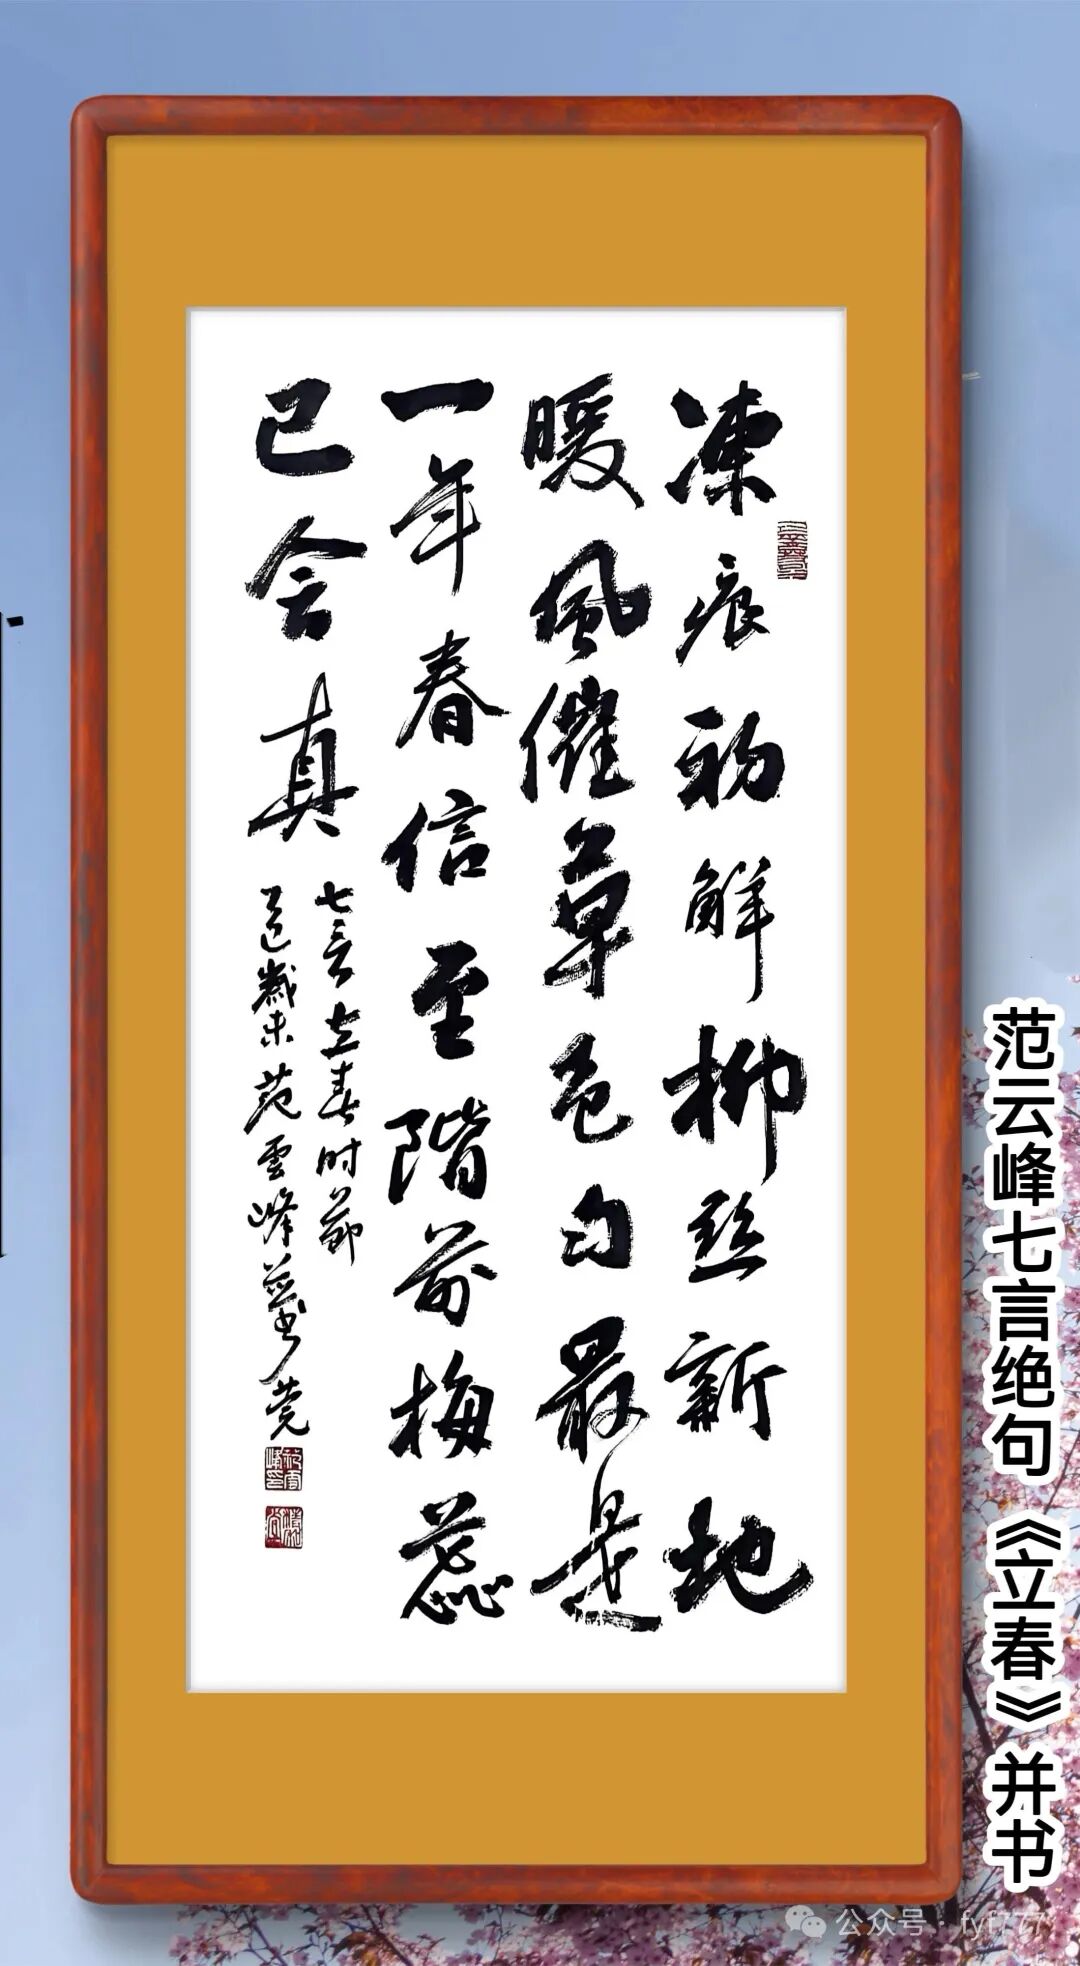 凍痕初解柳丝新地
暖風催草色勻最是
一年春信至階前梅蕊
已会真
七言立春时節
乙巳歲末范雲峰並书莞
范云峰七言绝句《立春》并书
公众号·fyf777